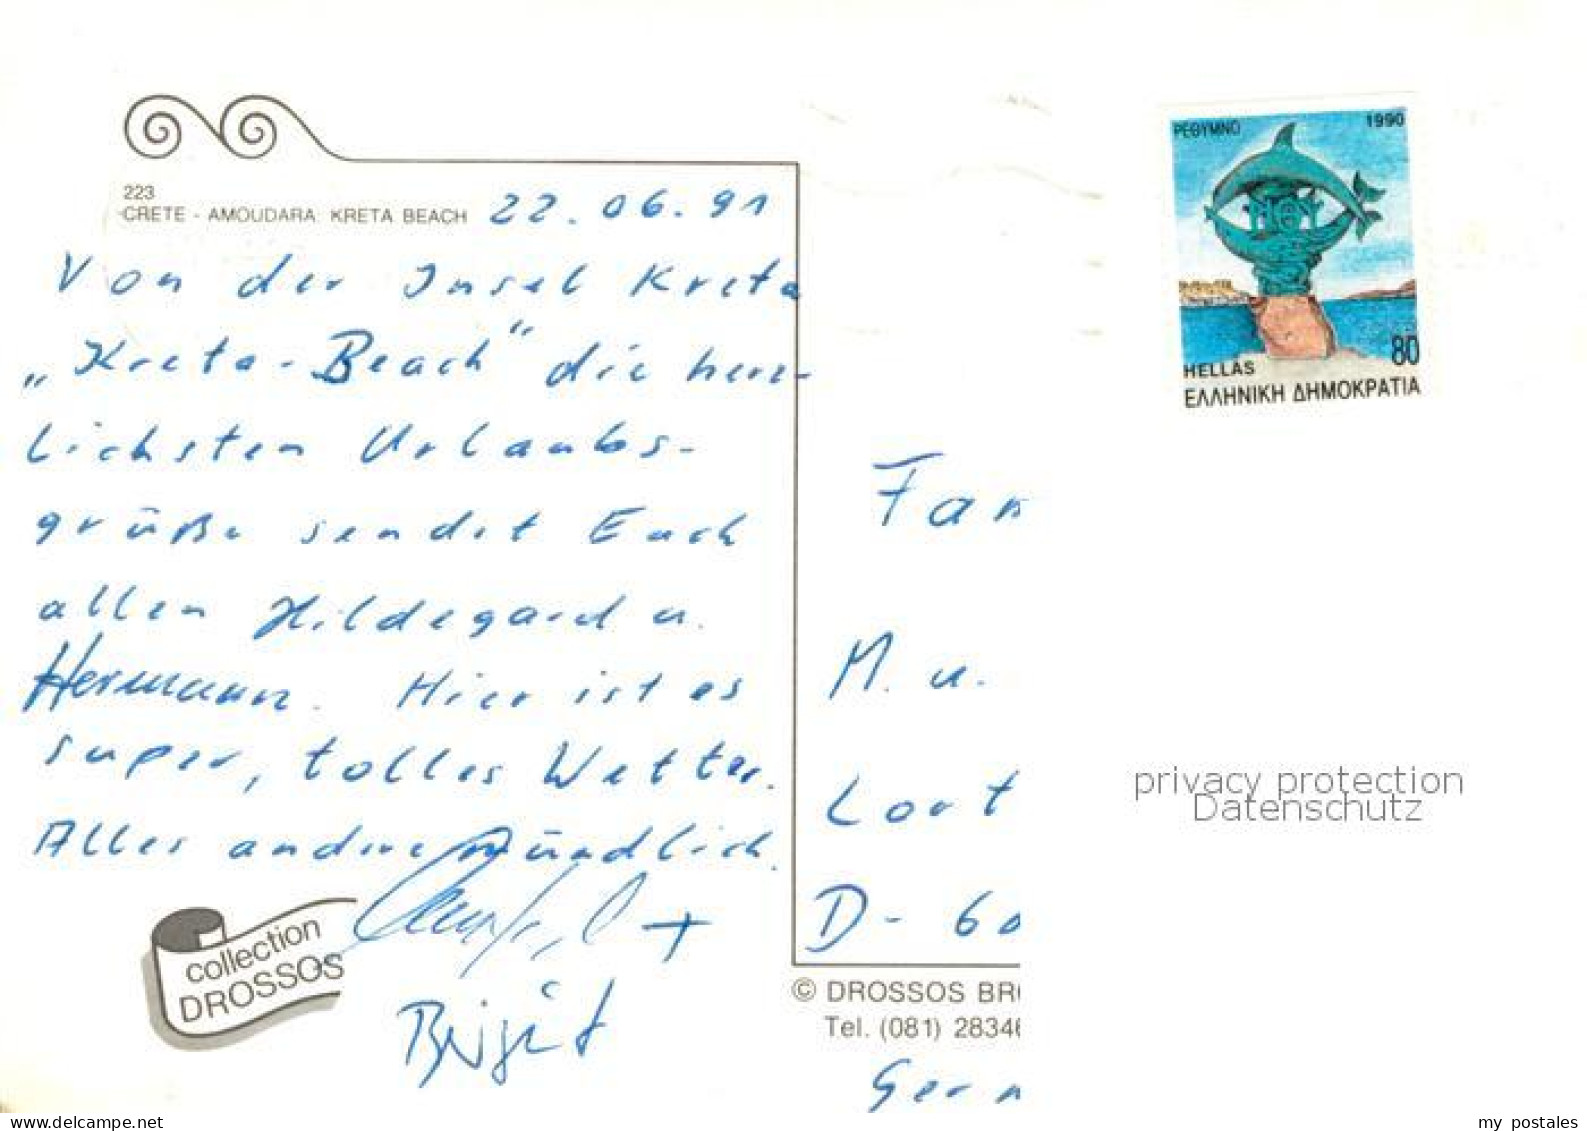 223
CRETE - AMOUDARA KRETA BEACH 22.06.91
Von der Insel Kreta
„Kreta-Beach" die herz-
lichsten Urlaubs-
grüße sendet Euch
allen Hildegard u.
Hermann. Hier ist es
super, tolles Wetter.
Alles andere mündlich.
+
Birgit
collection
DROSSOS
ΡΕΘΥΜΝΟ 1990
80
HELLAS
ΕΛΛΗΝΙΚΗ ΔΗΜΟΚΡΑΤΙΑ
Fam
M. u.
Lort
D-60
© DROSSOS BR
Tel. (081) 28346
Germ
privacy protection
Datenschutz
www.delcampe.net
my_postales